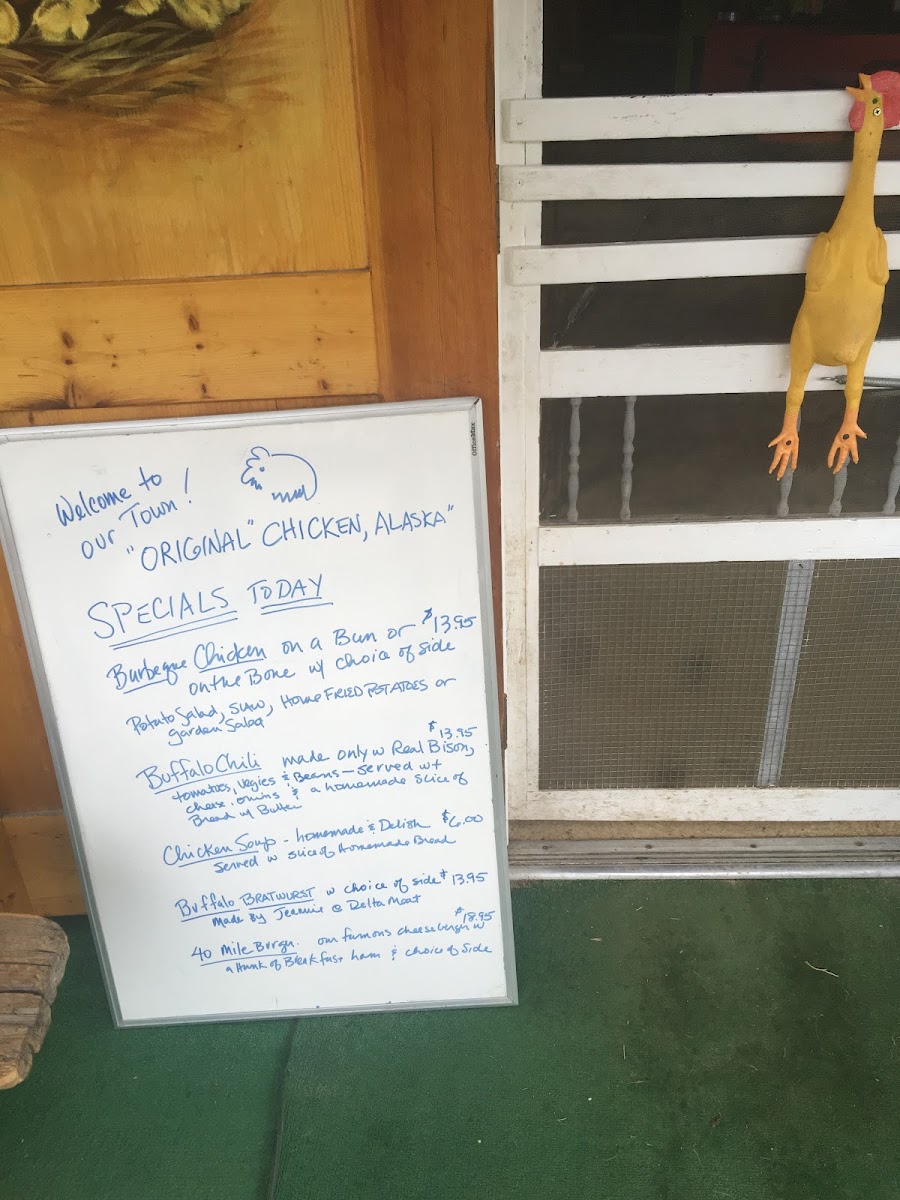 Welcome to
our Town!
"ORIGINAL" CHICKEN, ALASKA"
SPECIALS TODAY
Barbeque Chicken on a Bun or $13.95
on the Bone w/ choice of side
Potato Salad, slaw, HOME FRIED POTATOES or
garden Salad
$13.95
Buffalo Chili made only w Real Bison,
tomatoes, vegies & Beans - served w+
cheese, onins & a homemade slice of
Bread w/ Butter
Chicken Soup - homemade & Delish $6.00
served w slice of Homemade Bread
Buffalo BRATWURST w choice of side $13.95
made By Jeannie @ Delta Meat
$18.95
40 Mile Burgr. our famous cheeseburger w
a Hunk of Breakfast ham & choice of side
OfficeMax